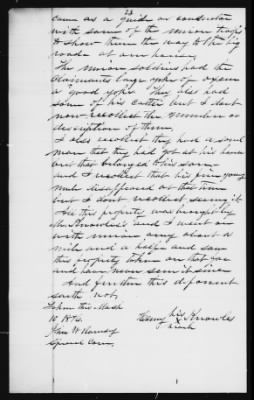 23
came as a guide or conductor
with some of the union troops
to show them the way to the big
road at our house.
The union soldiers had the
Claimants large yoke of oxen
a good yoke. They also had
some of his cattle but I dont
now recollect the number or
description of them.
I also recollect they had a
mare that they had got at his house
but that belonged to his son
and I recollect that his fine young
mule disappeared at this time
but I dont recollect seeing it
All this property was brought by
Mr Knowles and I went
with union army about a
mile and a half and saw
this property taken on that far
and have never seen it since
And further this deponent
saith not.
his
Henry X Knowles
mark
10 1874
John W Ramsey
Special Com.